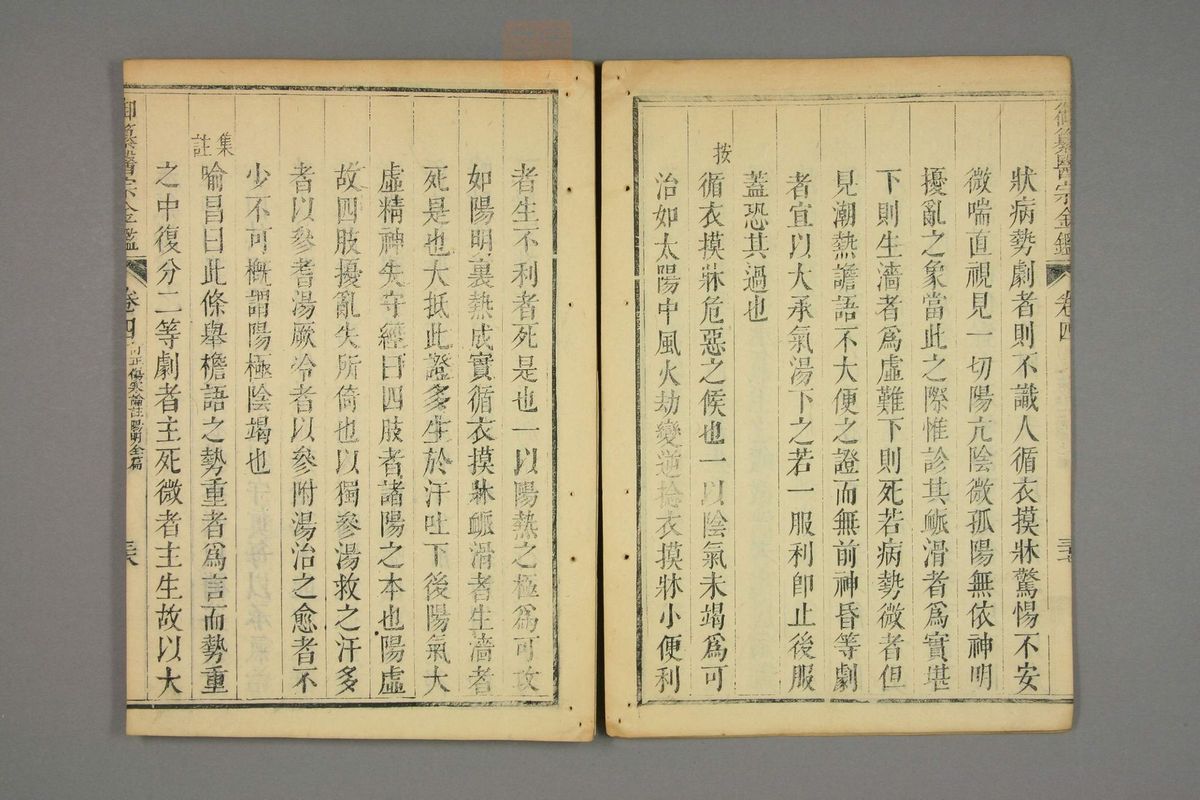 御纂醫宗金鑑
卷四
三七
狀病勢劇者則不識人循衣摸牀驚惕不安
微喘直視見一切陽亢陰微孤陽無依神明
擾亂之象當此之際惟診其脈滑者爲實堪
下則生濇者爲虛難下則死若病勢微者但
見潮熱譫語不大便之證而無前神昏等劇
者宜以大承氣湯下之若一服利即止後服
蓋恐其過也
按
循衣摸牀危惡之候也一以陰氣未竭爲可
治如太陽中風火劫變逆捻衣摸牀小便利
者生不利者死是也一以陽熱之極爲可攻
如陽明裏熱成實循衣摸牀脈滑者生濇者
死是也大抵此證多生於汗吐下後陽氣大
虛精神失守經曰四肢者諸陽之本也陽虛
故四肢擾亂失所倚也以獨參湯救之汗多
者以參耆湯厥冷者以參附湯治之愈者不
少不可概謂陽極陰竭也
集註
喻昌曰此條舉譫語之勢重者爲言而勢重
之中復分二等劇者主死微者主生故以大
御纂醫宗金鑑
卷四
訂正傷寒論註陽明全篇
三六